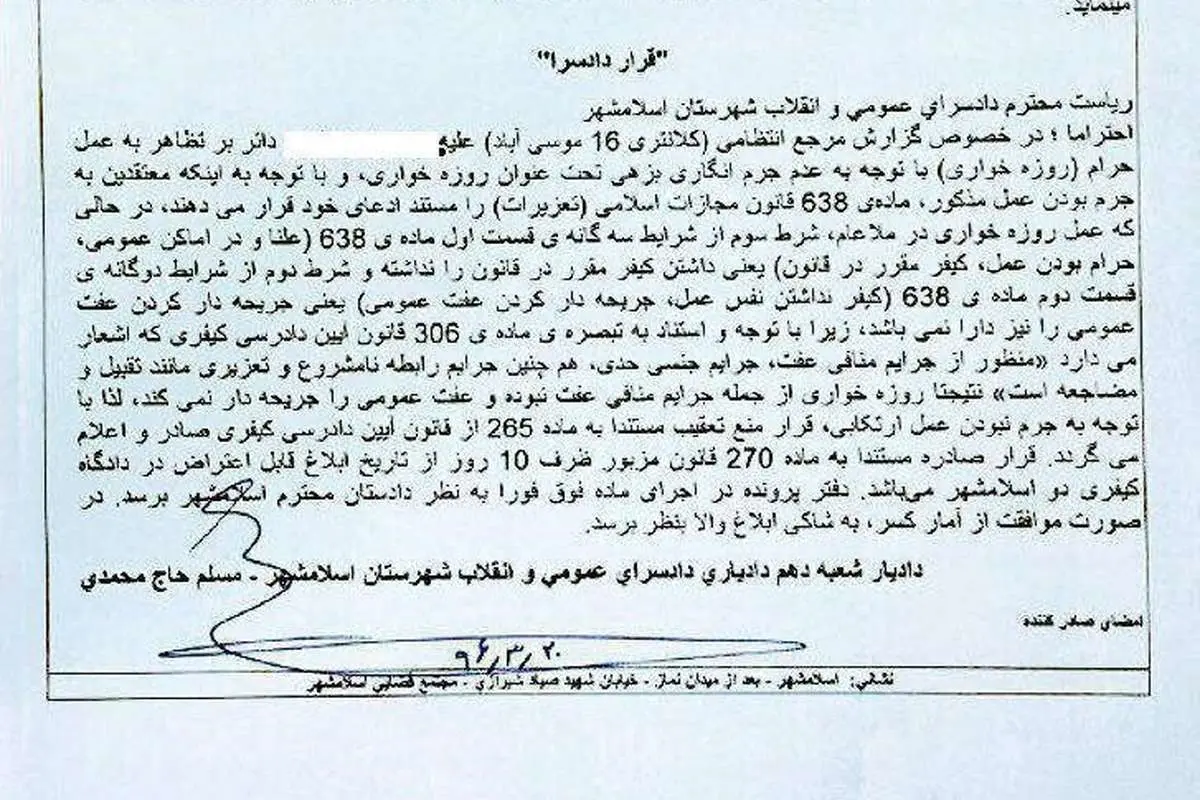 مینماید.
"قرار دادسرا"
ریاست محترم دادسراي عمومي و انقلاب شهرستان اسلامشهر
احتراما ؛ در خصوص گزارش مرجع انتظامی (کلانتری 16 موسی آباد) علیه دائر بر تظاهر به عمل
حرام (روزه خواری) با توجه به عدم جرم انگاری بزهی تحت عنوان روزه خواری، و با توجه به اینکه معتقدین به
جرم بودن عمل مذکور، ماده‌ی 638 قانون مجازات اسلامی (تعزیرات) را مستند ادعای خود قرار می دهند، در حالی
که عمل روزه خواری در ملاعام، شرط سوم از شرایط سه گانه ی قسمت اول ماده ی 638 (علنا و در اماکن عمومی،
حرام بودن عمل، کیفر مقرر در قانون) یعنی داشتن کیفر مقرر در قانون را نداشته و شرط دوم از شرایط دوگانه ی
قسمت دوم ماده ی 638 (کیفر نداشتن نفس عمل، جریحه دار کردن عفت عمومی) یعنی جریحه دار کردن عفت
عمومی را نیز دارا نمی باشد، زیرا با توجه و استناد به تبصره ی ماده ی 306 قانون آیین دادرسی کیفری که اشعار
می دارد «منظور از جرایم منافی عفت، جرایم جنسی حدی، هم چنین جرایم رابطه نامشروع و تعزیری مانند تقبیل و
مضاجعه است» نتیجتا روزه خواری از جمله جرایم منافی عفت نبوده و عفت عمومی را جریحه دار نمی کند، لذا با
توجه به جرم نبودن عمل ارتکابی، قرار منع تعقیب مستندا به ماده 265 از قانون آیین دادرسی کیفری صادر و اعلام
می گردد. قرار صادره مستندا به ماده 270 قانون مزبور ظرف 10 روز از تاریخ ابلاغ قابل اعتراض در دادگاه
کیفری دو اسلامشهر می‌باشد. دفتر پرونده در اجرای ماده فوق فورا به نظر دادستان محترم اسلامشهر برسد. در
صورت موافقت از آمار کسر، به شاکی ابلاغ والا بنظر برسد.
دادیار شعبه دهم دادیاري دادسراي عمومي و انقلاب شهرستان اسلامشهر - مسلم حاج محمدي
امضای صادر کننده
۹۶٫۳٫۲۰
نشانی: اسلامشهر - بعد از میدان نماز - خیابان شهید صیاد شیرازي - مجتمع قضایي اسلامشهر